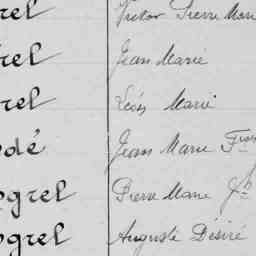 rel Victor Pierre Marie
rel Jean Marie
rel Léon Marie
dé Jean Marie Fçois
ogrel Pierre Marie Jh
ogrel Auguste Désiré